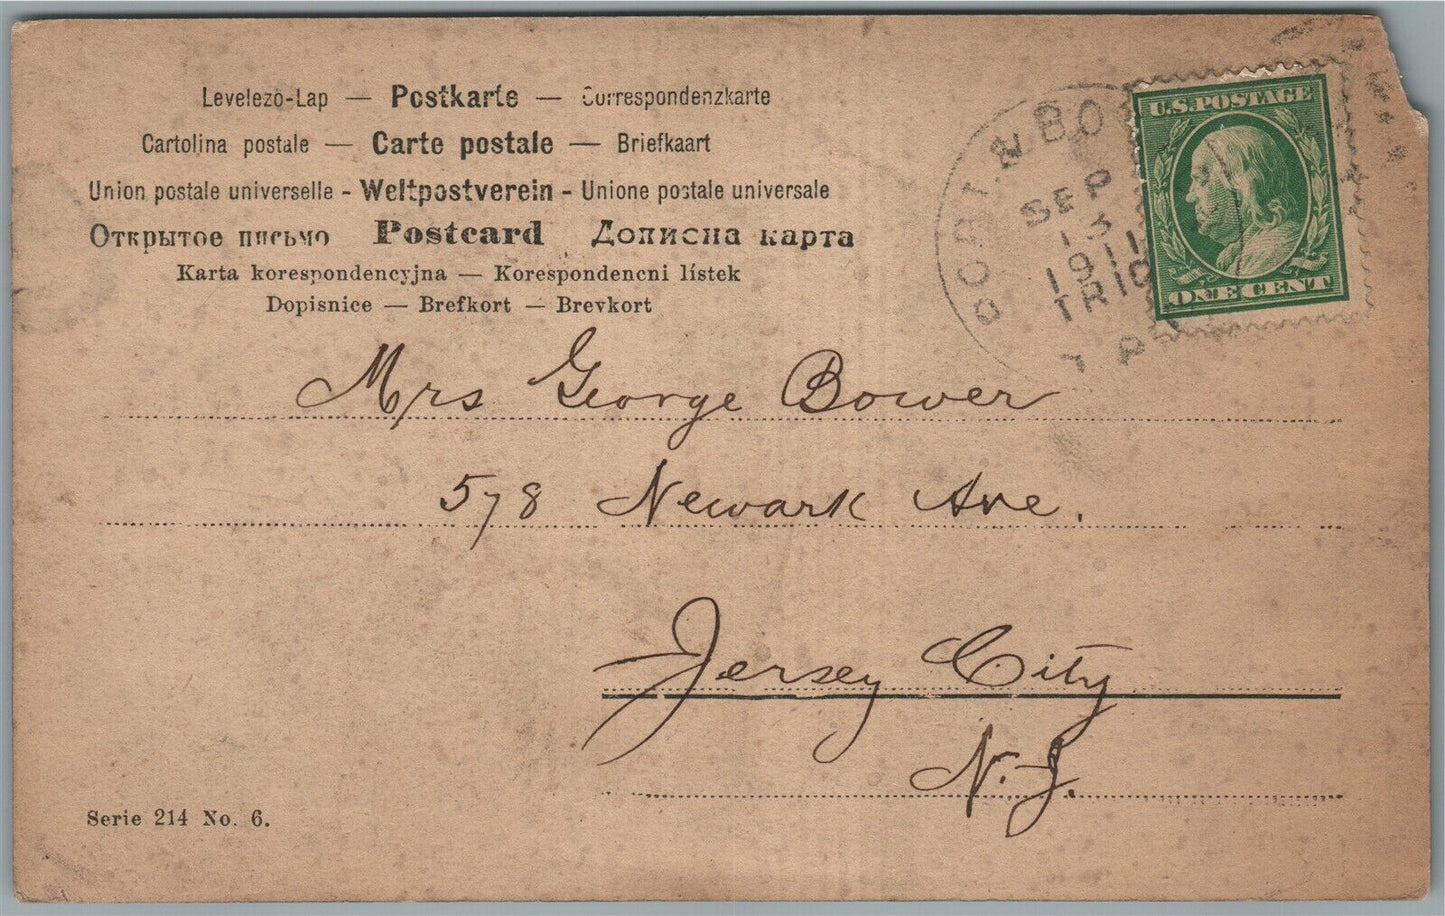 Levelezö-Lap — Postkarte — Correspondenzkarte
Cartolina postale — Carte postale — Briefkaart
Union postale universelle - Weltpostverein - Unione postale universale
Открытое письмо Postcard Дописна карта
Karta korespondencyjna — Korespondencni lístek
Dopisnice — Brefkort — Brevkort
SEP
13
1911
U.S. POSTAGE
ONE CENT
Mrs George Bower
578 Newark Ave.
Jersey City
N.J.
Serie 214 No. 6.